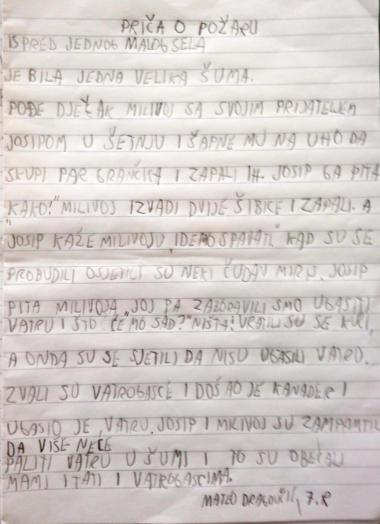 PRIČA O POŽARU
ISPRED JEDNOG MALOG SELA
JE BILA JEDNA VELIKA ŠUMA.
POĐE DJEČAK MILIVOJ SA SVOJIM PRIJATELJEM
JOSIPOM U ŠETNJU I ŠAPNE MU NA UHO DA
SKUPI PAR GRANČICA I ZAPALI IH. JOSIP GA PITA
"KAKO?" MILIVOJ IZVADI DVIJE ŠIBICE I ZAPALI. A
JOSIP KAŽE MILIVOJU "IDEMO SPAVATI" KAD SU SE
PROBUDILI OSJETILI SU NEKI ČUDAN MIRIS. JOSIP
PITA MILIVOJA „JOJ PA ZABORAVILI SMO UGASITI
VATRU I ŠTO ĆEMO SAD?" NIŠTA! VRATILI SU SE KUĆI,
A ONDA SU SE SJETILI DA NISU UGASILI VATRU.
ZVALI SU VATROGASCE I DOŠAO JE KANADER I
UGASIO JE VATRU. JOSIP I MILIVOJ SU ZAMPAMTILI
DA VIŠE NEĆE
PALITI VATRU U ŠUMI I TO SU OBEĆALI
MAMI I TATI I VATROGASCIMA.
MATEO 7.R